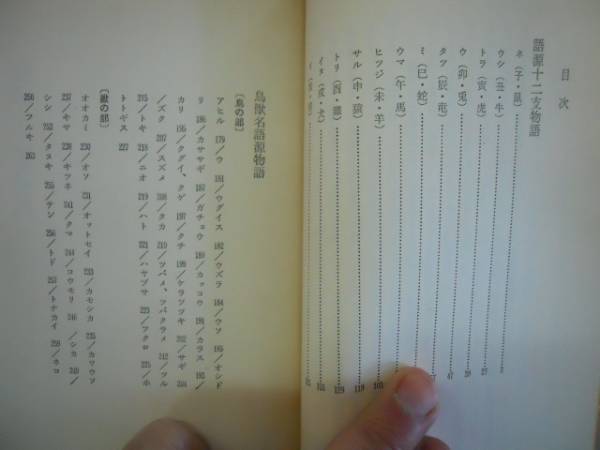 目次
語源十二支物語
ネ(子・鼠)
ウシ(丑・牛)
トラ(寅・虎) 27
ウ(卯・兎) 39
タツ(辰・竜) 47
ミ(巳・蛇)
ウマ(午・馬)
ヒツジ(未・羊) 103
サル(申・猿) 119
トリ(酉・鶏) 129
イヌ(戌・犬)
鳥獣名語源物語
〔鳥の部〕
アヒル 179/ウ 181/ウグイス 182/ウズラ 184/ウソ 185/オシド
リ 186/カササギ 187/ガチョウ 189/カッコウ 190/カラス 192/
カリ 195/クグイ、クゲ 197/クチ 198/ケラツツキ 202/サギ
/シズク 207/スズメ 208/タカ 210/ツバメ、ツバクラメ 212/ツル
215/トキ 218/ニオ 219/ハト 221/ハヤブサ 223/フクロ 225/ホ
トトギス 227
〔獣の部〕
オオカミ 230/オソ 231/オットセイ 233/カモシカ 235/カワウソ
237/キサ 238/キツネ 241/クマ 244/コウモリ 246/シカ
シシ 252/タヌキ 255/テン 256/トド 257/トナカイ 259/ネコ
260/フルキ 263